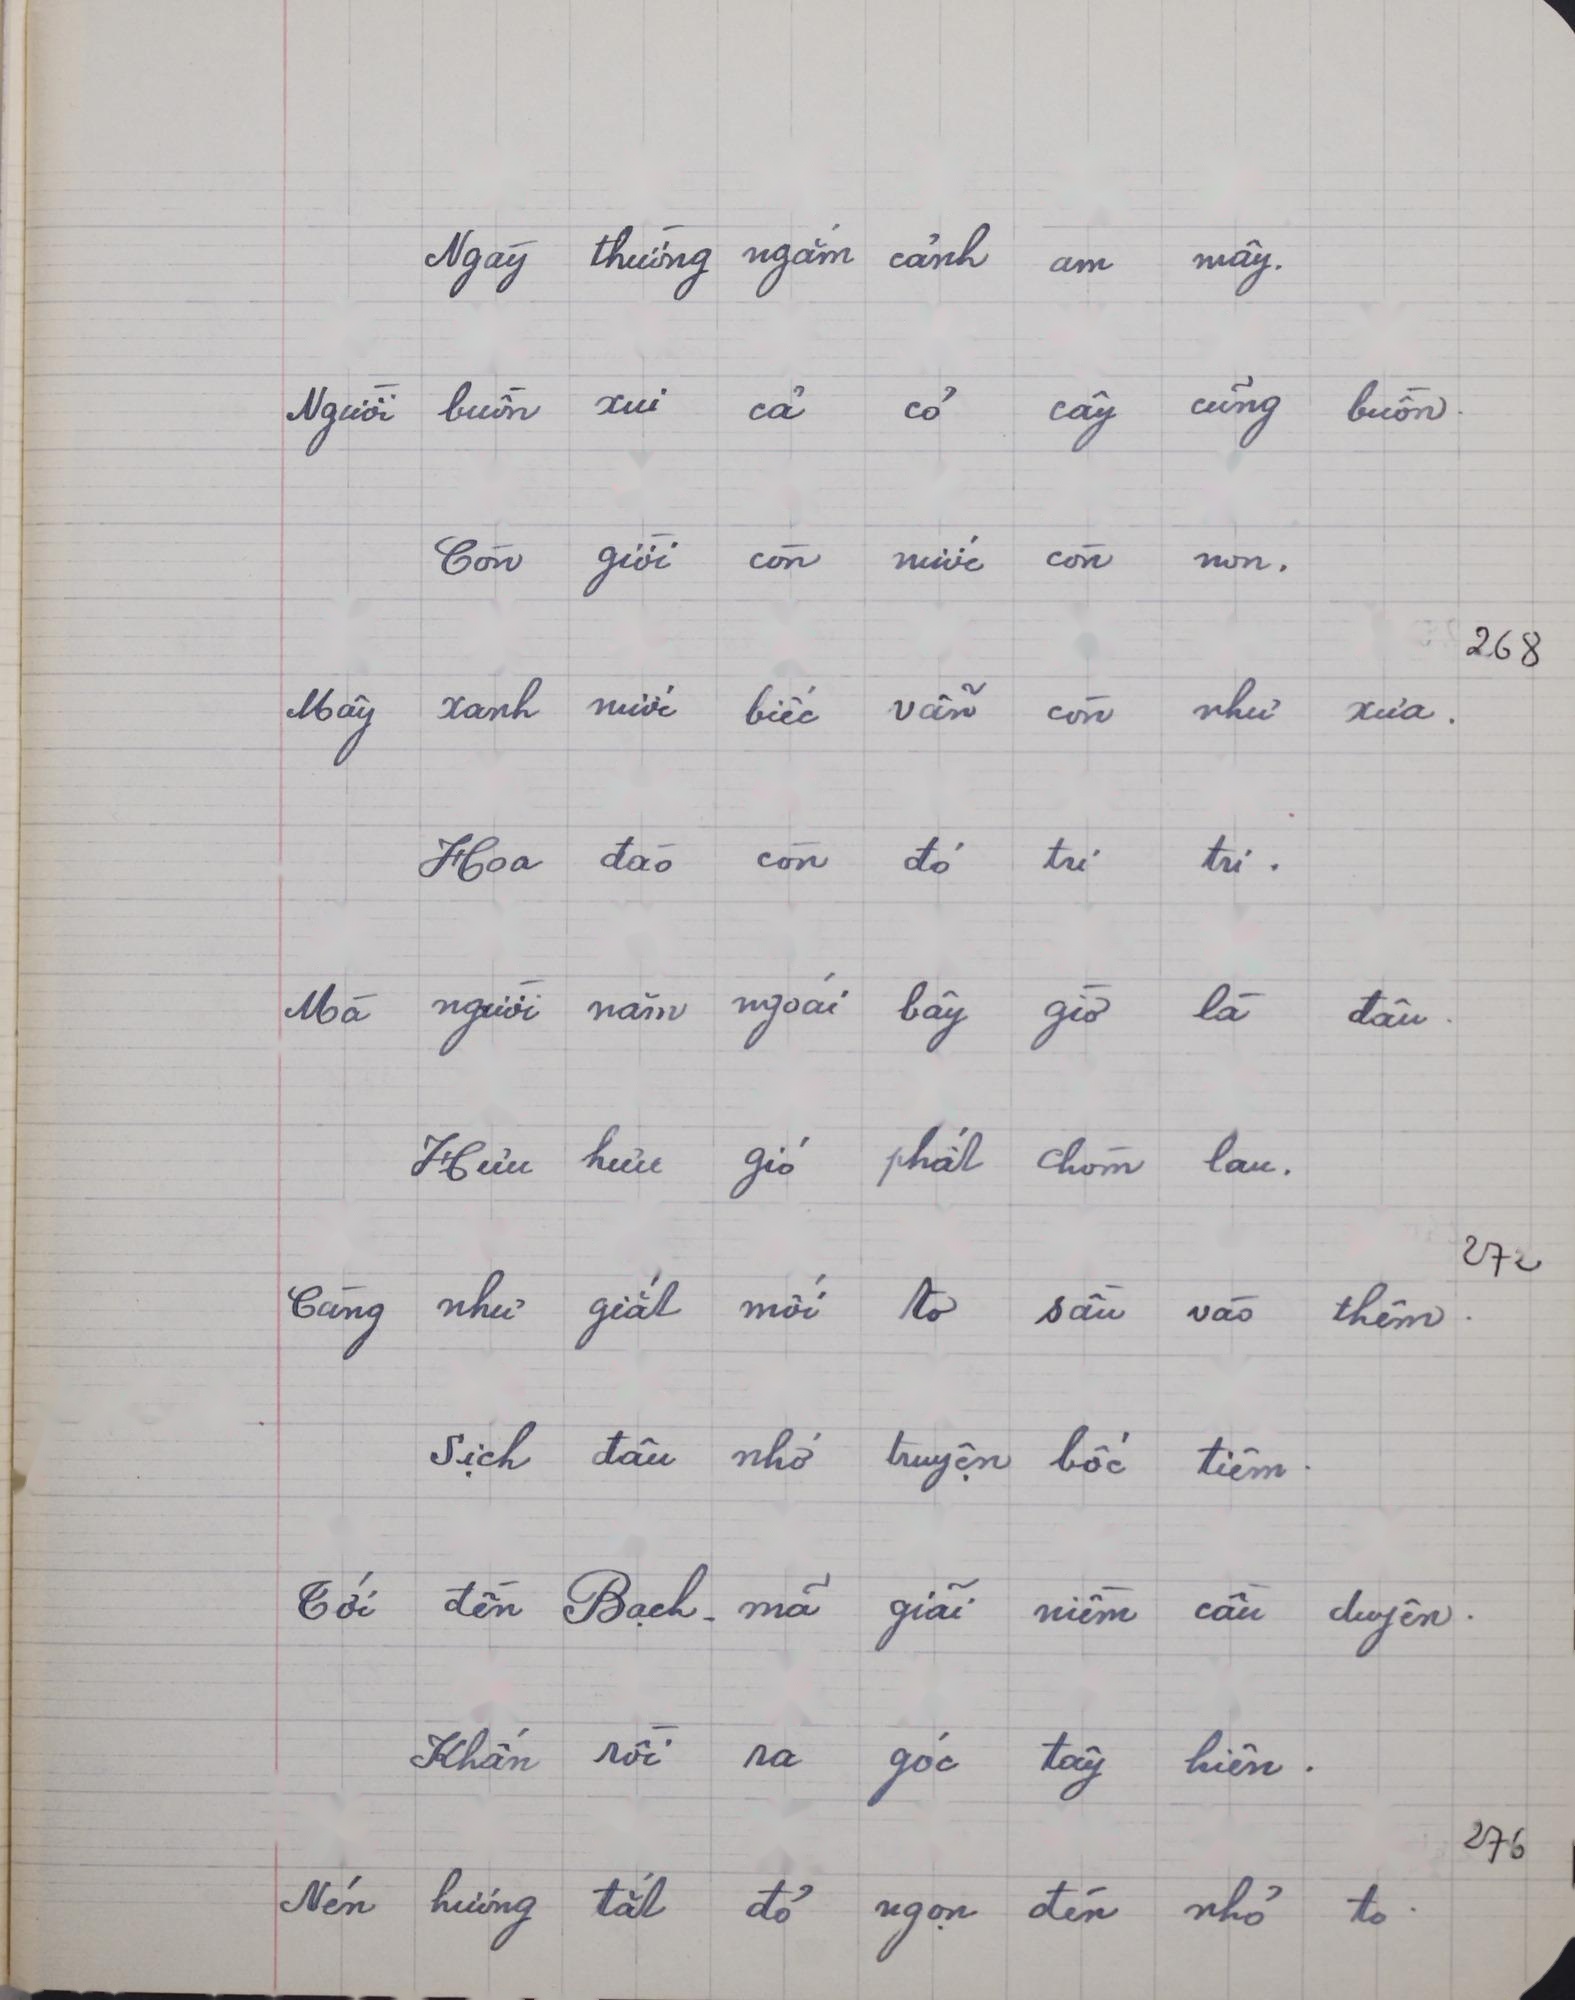 Ngày thường ngắm cảnh am mây.
Người buồn xui cả cỏ cây cũng buồn.
Còn giời còn nước còn non.
268
Mây xanh nước biếc vẫn còn như xưa.
Hoa đào còn đó trơ trơ.
Mà người năm ngoái bây giờ là đâu.
Hưu hưu gió phất chòm lau.
272
Càng như giắt mối tơ sầu vào thêm.
Sịch đâu nhớ truyện bốc tiêm.
Tới đền Bạch-mã giãi niềm cầu duyên.
Khấn rồi ra góc tây hiên.
276
Nén hương tắt đỏ ngọn đèn nhỏ to.